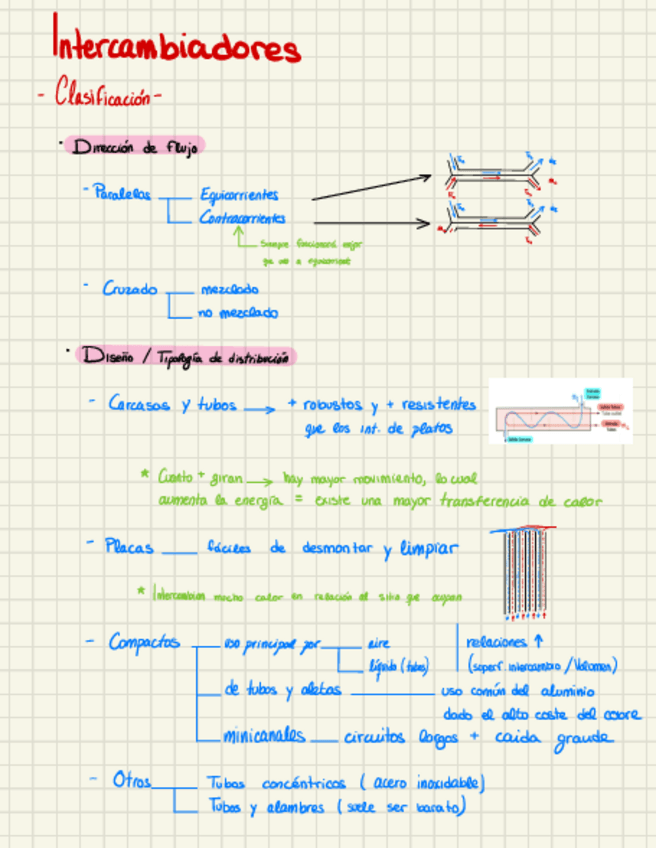 Intercambiadores
- Clasificación -
· Dirección de flujo
- Paralelos Equicorrientes
Contracorrientes
Siempre funcionará mejor
que uno a equicorriente
- Cruzado mezclado
no mezclado
· Diseño / Tipología de distribución
- Carcasas y tubos → + robustos y + resistentes
que los int. de platos
* Cuanto + giran → hay mayor movimiento, lo cual
aumenta la energía = existe una mayor transferencia de calor
- Placas fáciles de desmontar y limpiar
* Intercambian mucho calor en relación al sitio que ocupan
- Compactos uso principal por aire
líquido (tubos)
relaciones ↑
(superf. intercambio / Volumen)
de tubos y aletas uso común del aluminio
dado el alto coste del cobre
minicanales circuitos largos + caida grande
- Otros Tubos concéntricos ( acero inoxidable)
Tubos y alambres ( suele ser barato)